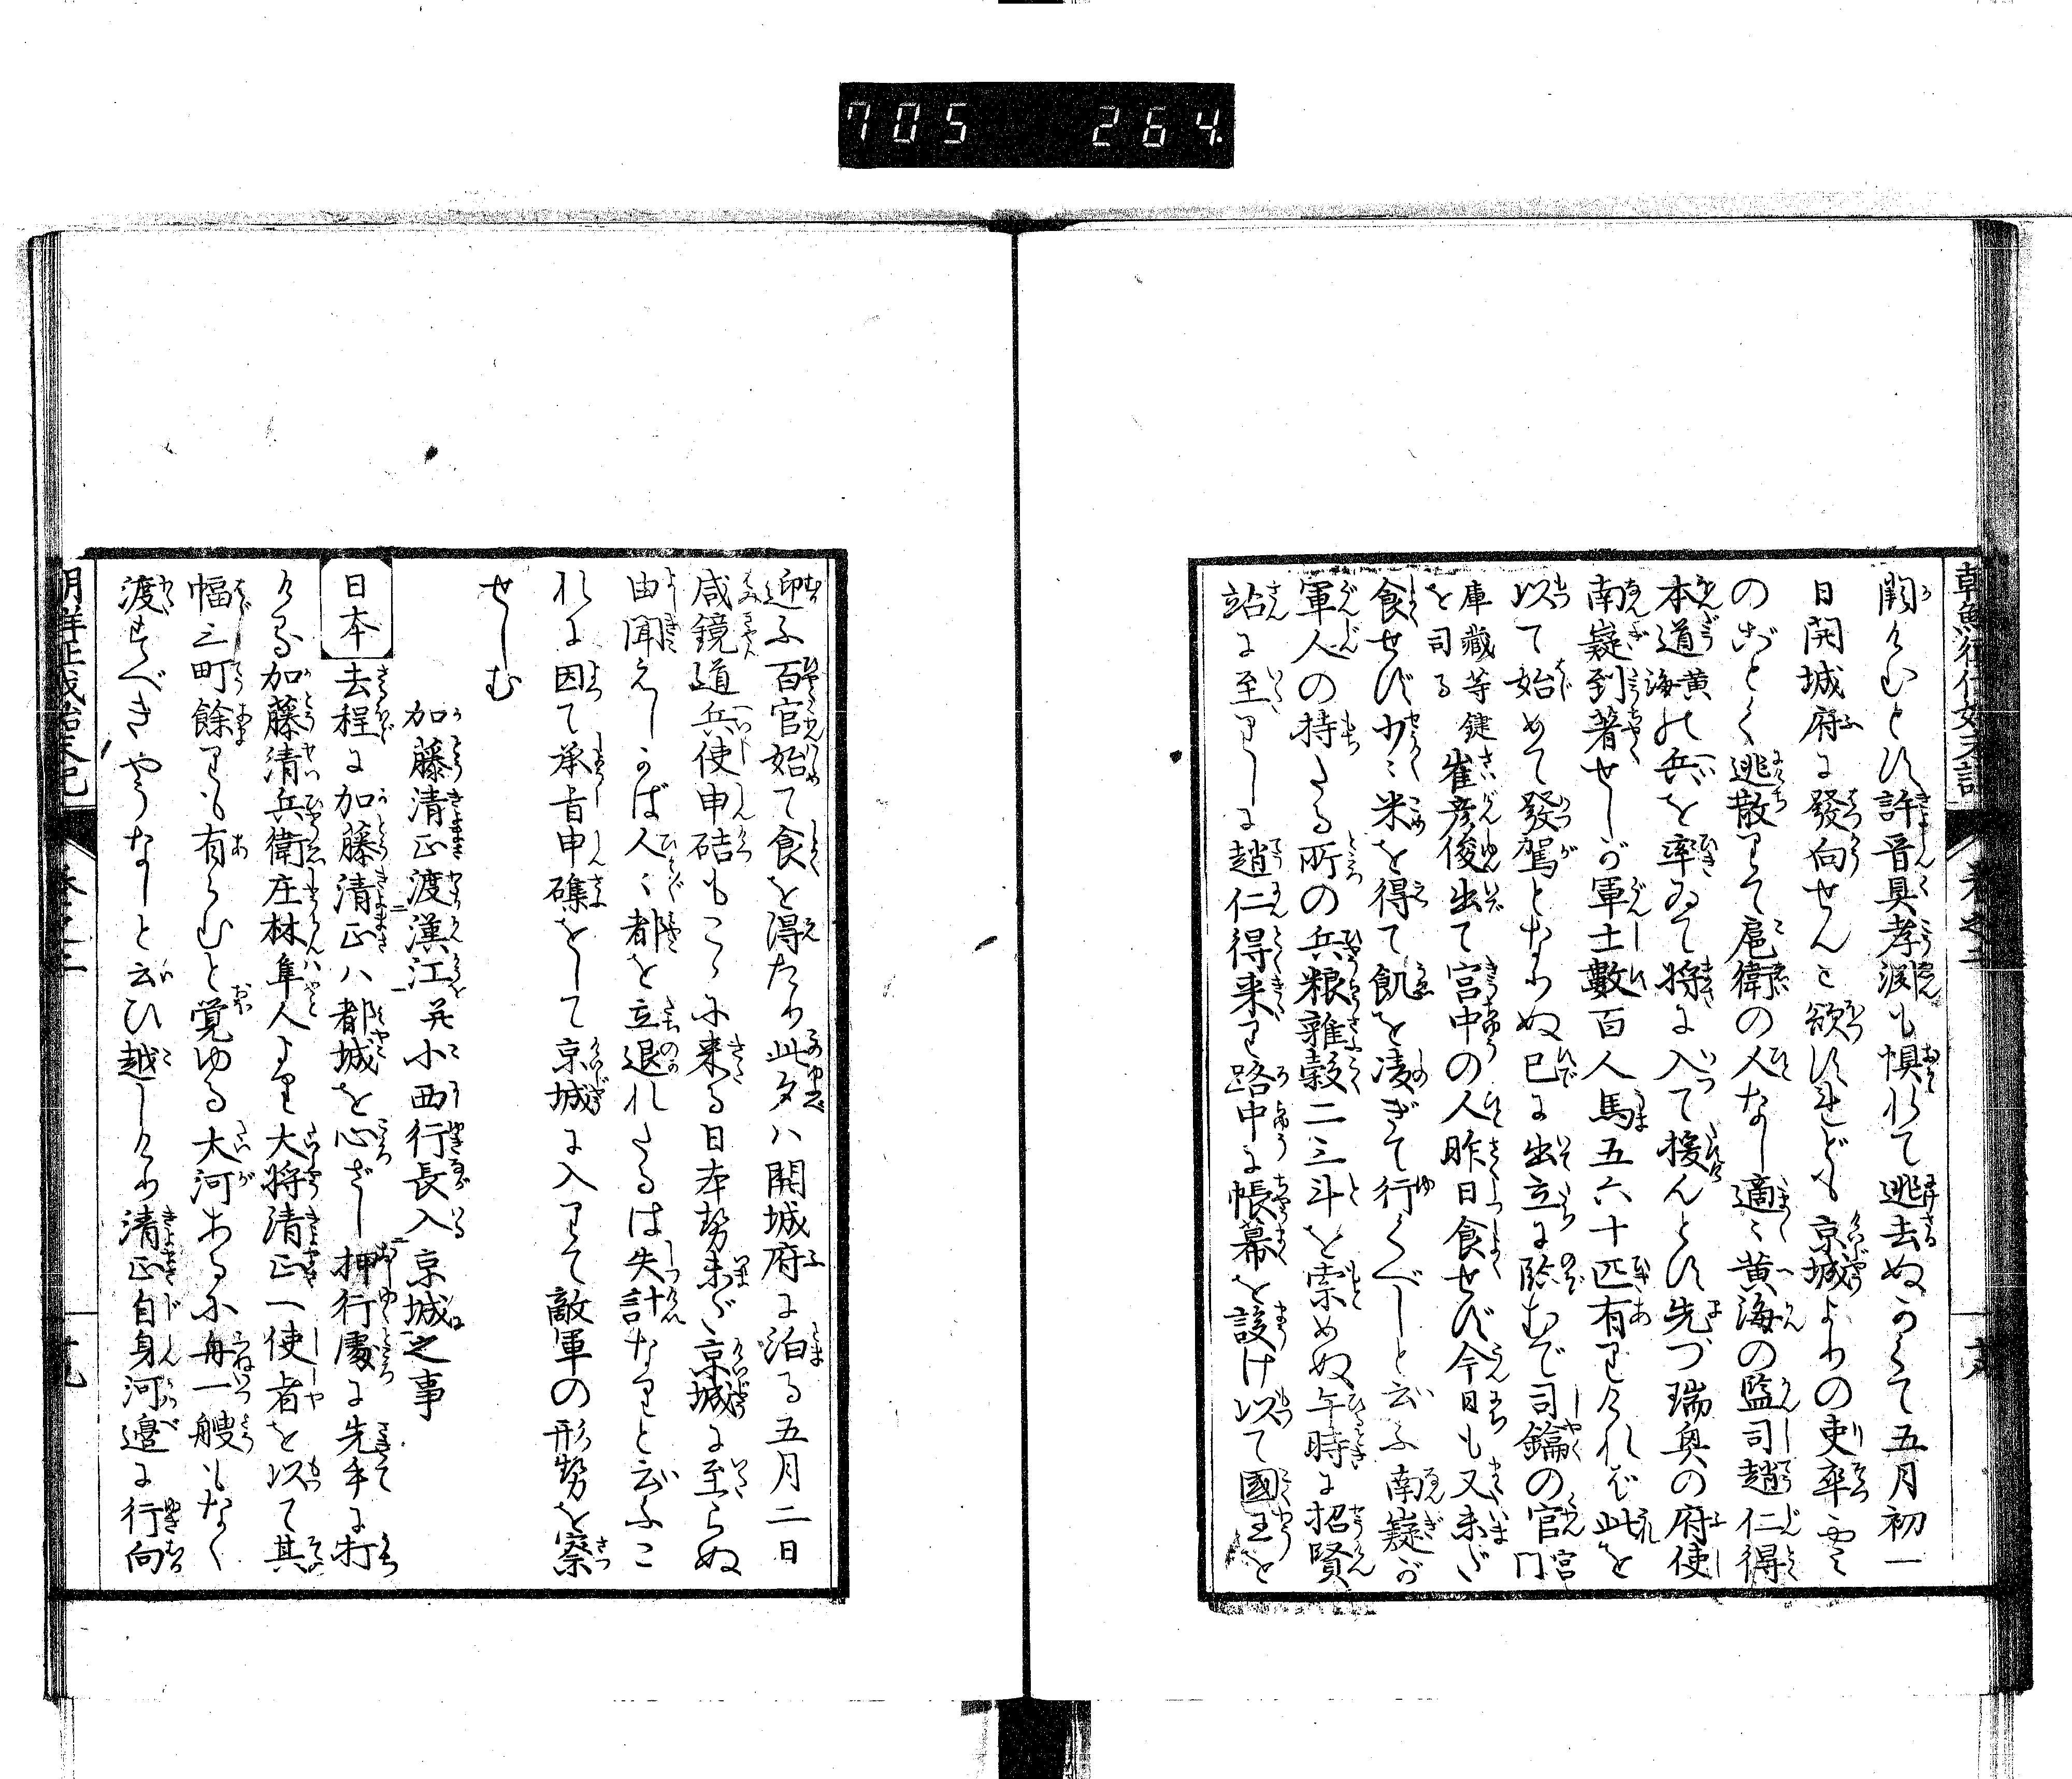 705 264
闕けむとす許晋具孝淵も惧れて逃去ぬかくて五月初一
日開城府に發向せんと欲すれども京城よりの吏卒雲
のごとく逃散りて扈衛の人なし適々黄海の監司趙仁得
本道黄海の兵を率ゐて将に入て援んとす先づ瑞興の府使
南嶷到著せしが軍士數百人馬五六十匹有りければ此を
以て始めて發駕となりぬ已に出立に臨むで司鑰の官宮門
庫藏等鍵を司る崔彦俊出て宮中の人昨日食せず今日も又未だ
食せず少々米を得て飢を凌ぎて行くべしと云ふ南嶷が
軍人の持たる所の兵粮雜穀二三斗を索めぬ午時に招賢
站に至りしに趙仁得来り路中に帳幕を設け以て國王を
迎ふ百官始て食を得たり此夕ハ開城府に泊る五月二日
咸鏡道兵使申硈もこゝに来る日本勢未だ京城に至らぬ
由聞えしかば人々都を立退れたるは失計なりと云ふこ
れに因て承旨申磼をして京城に入りて敵軍の形勢を察
せしむ
加藤清正渡漢江并小西行長入京城之事
日本 去程に加藤清正ハ都城を心ざし押行處に先手に打
ける加藤清兵衛庄林隼人より大将清正一使者を以て其
幅三町餘りも有らむと覚ゆる大河あるに舟一艘もなく
渡すべきやうなしと云ひ越しけり清正自身河邉に行向